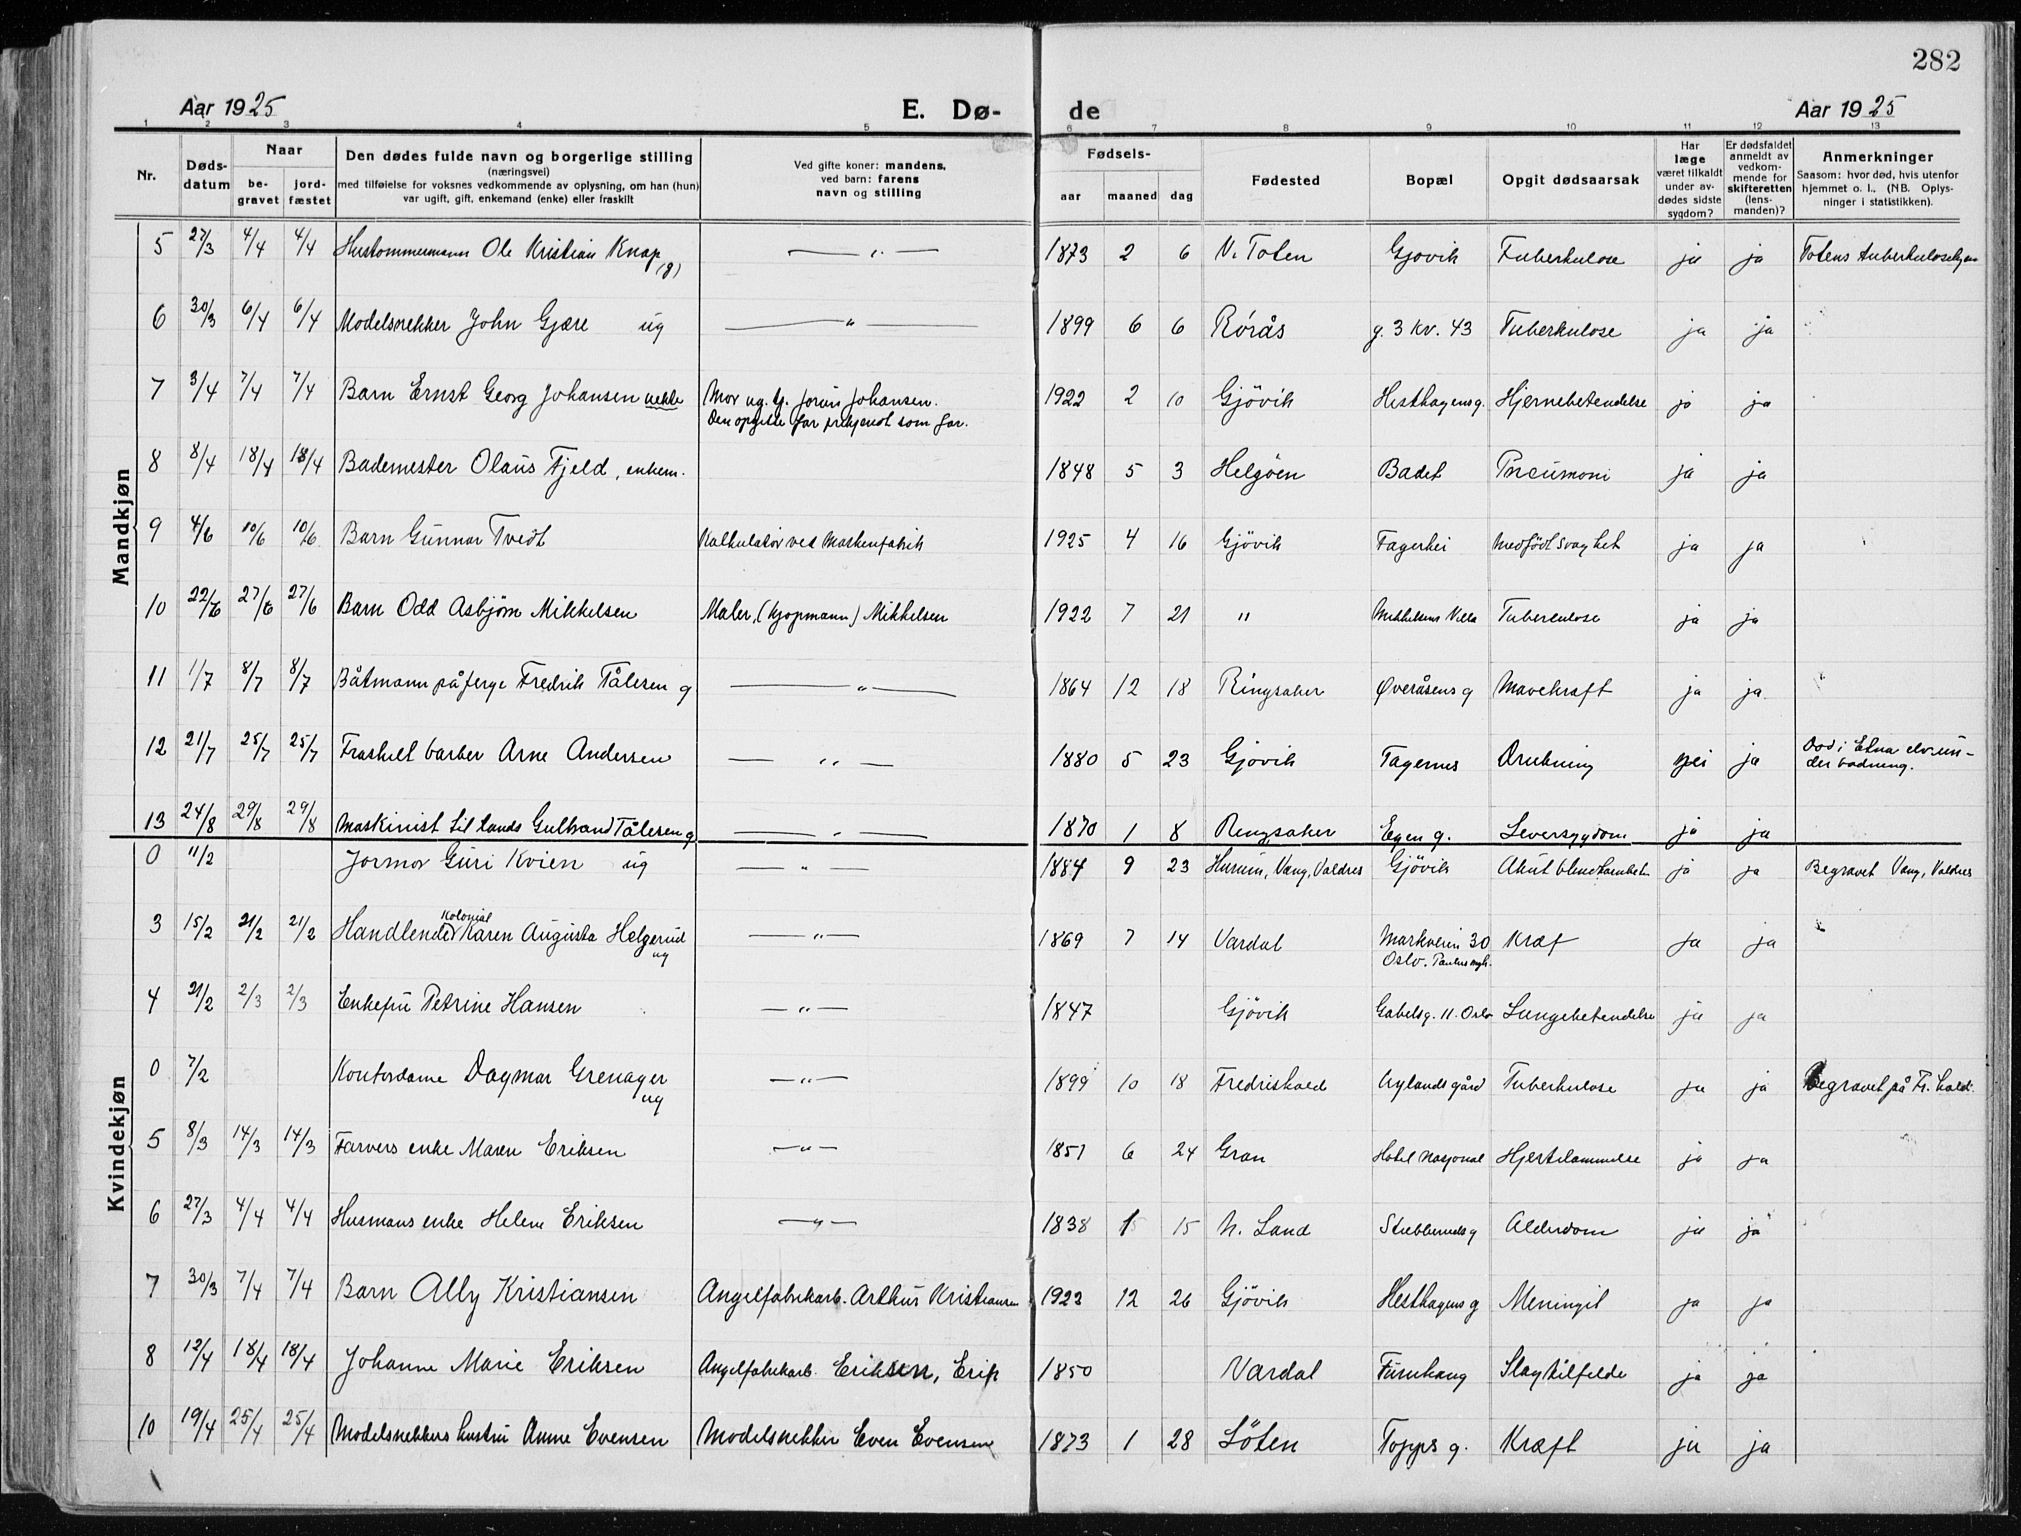 282
Aar 1925 E. Dø- de Aar 1925
1 2 3 4 5 6 7 8 9 10 11 12 13
Nr.
Døds-
datum
Naar
be-
gravet
jord-
fæstet
Den dødes fulde navn og borgerlige stilling
(næringsvei)
med tilføielse for voksnes vedkommende av oplysning, om han (hun)
var ugift, gift, enkemand (enke) eller fraskilt
Ved gifte koner: mandens,
ved barn: farens
navn og stilling
Fødsels-
aar maaned dag
Fødested
Bopæl
Opgit dødsaarsak
Har
læge
været tilkaldt
under av-
dødes sidste
sygdom?
Er dødsfaldet
anmeldt av
vedkom-
mende for
skifteretten
(lens-
manden)?
Anmerkninger
Saasom: hvor død, hvis utenfor
hjemmet o. l., (NB. Oplys-
ninger i statistikken).
Mandkjøn
5 27/3 4/4 4/4 Hustømmermann Ole Kristian Knap (g) — „ — 1873 2 6 V. Toten Gjøvik Tuberkulose ja ja Totens tuberkulosehjem
6 30/3 6/4 6/4 Modelsnekker John Gjære ug — „ — 1899 6 6 Rørås g. 3 kv. 43 Tuberkulose ja ja
7 3/4 7/4 7/4 Barn Ernst Georg Johansen uekte Mor ug. Jorun Johansen. 1922 2 10 Gjövik Hesthagensg. Hjernebetendelse ja ja
Den opgitte far erkjendt som far.
8 8/4 18/4 18/4 Bademester Olaus Fjeld, enkem. 1848 5 3 Helgöen Badet Pneumoni ja ja
9 4/6 10/6 10/6 Barn Gunnar Tvedt Kalkulatör ved Maskenfabrik 1925 4 16 Gjövik Fagerhei Medfödt svaghet ja ja
10 22/6 27/6 27/6 Barn Odd Asbjørn Mikkelsen Maler, (kjøpmann) Mikkelsen 1922 7 21 " Mikkelsens Villa Tuberculose ja ja
11 1/7 8/7 8/7 Båtmann på ferge Fredrik Tålesen g — „ — 1864 12 18 Ringsaker Øveråsens g Mavekræft ja ja
12 21/7 25/7 25/7 Fraskilt barber Arne Andersen — „ — 1880 5 23 Gjövik Fagernes Drukning nei ja Död i Etna elv un-
der badning.
13 24/8 29/8 29/8 Maskinist til lands Gulbrand Tålesen g — „ — 1870 1 8 Ringsaker Egen g. Leversygdom ja ja
Kvindekjøn
0 11/2 Jormor Guri Kvien ug — „ — 1884 9 23 Hurum, Vang, Valdres Gjövik Akut blindtarmbet. ja ja Begravet Vang, Valdres
3 15/2 21/2 21/2 Handlende Kolonial Karen Augusta Helgerud ug — „ — 1869 7 14 Vardal Markveien 30 Kræf ja ja
Oslo. Paulus mgh.
4 21/2 2/3 2/3 Enkefru Petrine Hansen — „ — 1847 Gjövik Gabelsg. 11. Oslo Lungebetendelse ja ja
0 7/2 Kontordame Dagmar Grenager ug — „ — 1899 10 18 Fredrikshald Nylands gård Tuberkulose ja ja Begravet på Fr. hald.
5 8/3 14/3 14/3 Farvers enke Maren Eriksen — „ — 1851 6 24 Gran Hotel Nasjonal Hjertelammelse ja ja
6 27/3 4/4 4/4 Husmans enke Helene Eriksen — „ — 1838 1 15 N. Land Stubberudsg Alderdom ja ja
7 30/3 7/4 7/4 Barn Ally Kristiansen Angelfabrikarb. Arthur Kristiansen 1923 12 26 Gjövik Hesthagens g Meningit ja ja
8 12/4 18/4 18/4 Johanne Marie Eriksen Angelfabrikarb. Eriksen, Erik 1850 Vardal Furuhaug Slagtilfelde ja ja
10 19/4 25/4 25/4 Modelsnekkers hustru Anne Evensen Modelsnekker Even Evensen 1873 1 28 Löten Topps g. Kræft ja ja